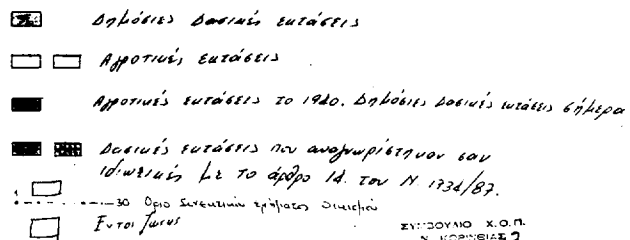 Δημόσιες Δασικές εκτάσεις
Αγροτικές εκτάσεις
Αγροτικές εκτάσεις το 1940. Δημόσιες Δασικές εκτάσεις σήμερα
Δασικές εκτάσεις που αναγνωρίστηκαν σαν
ιδιωτικές με το άρθρο 14. του Ν 1734/87.
1 30 Οριο Συνεκτικού τμήματος οικισμού
Εντος ζωνης
ΣΥΜΒΟΥΛΙΟ Χ.Ο.Π.
Ν. ΚΟΡΙΝΘΙΑΣ